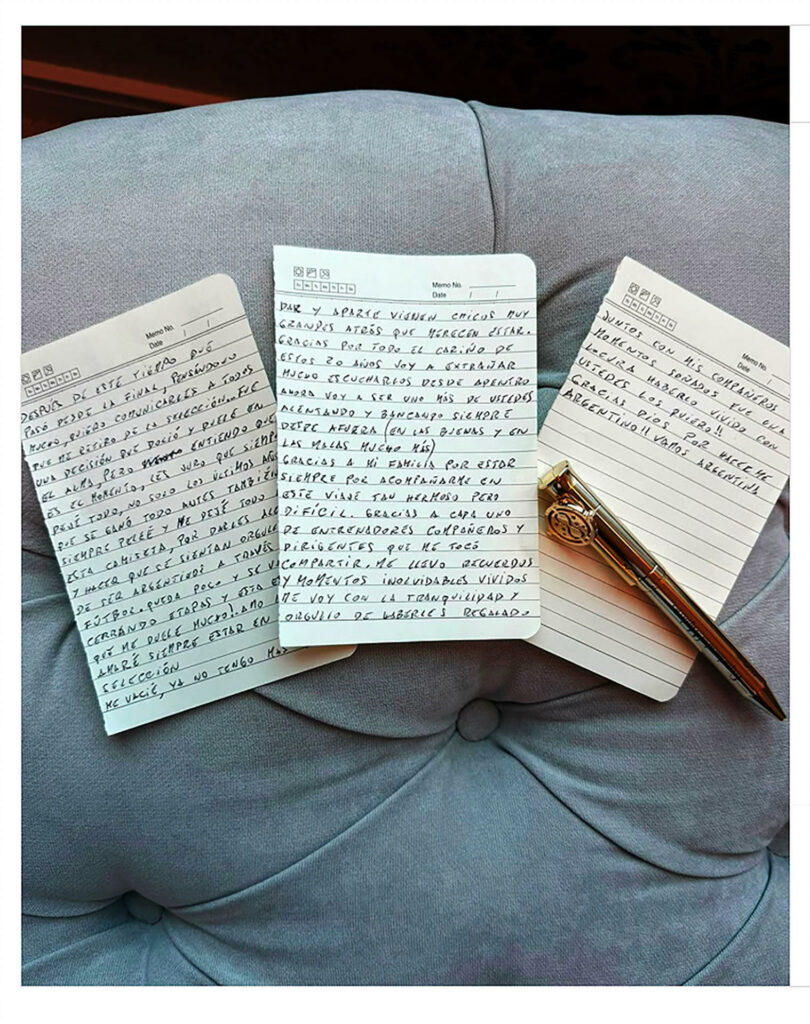 Memo No.
Date / /
DESPUÉS DE ESTE TIEMPO QUE
PASÓ DESDE LA FINAL, PENSÁNDOLO
MUCHO, QUIERO COMUNICARLES A TODOS
QUE ME RETIRO DE LA SELECCIÓN. FUE
UNA DECISIÓN QUE DOLIÓ Y DUELE EN
EL ALMA, PERO ENTIENDO QUE
ES EL MOMENTO, LES JURO QUE SIEMPRE
DEJÉ TODO, NO SOLO LOS ÚLTIMOS AÑOS
QUE SE GANÓ TODO ANTES TAMBIÉN
SIEMPRE PELEÉ Y ME DEJÉ TODO
ESTA CAMISETA, POR DARLES
Y HACER QUE SE SIENTAN
DE SER ARGENTINOS A TRAVÉS
FÚTBOL. QUEDA POCO Y SE
CERRANDO ETAPAS Y ESTA
QUE ME DUELE MUCHO! AMO
AMARÉ SIEMPRE ESTAR EN
SELECCIÓN
ME VACIÉ, YA NO TENGO MÁS
Memo No.
Date / /
DAR Y APARTE VIENEN CHICOS MUY
GRANDES ATRÁS QUE MERECEN ESTAR.
GRACIAS POR TODO EL CARIÑO DE
ESTOS 20 AÑOS VOY A EXTRAÑAR
MUCHO ESCUCHARLOS DESDE ADENTRO
AHORA VOY A SER UNO MÁS DE USTEDES
ALENTANDO Y BANCANDO SIEMPRE
DESDE AFUERA (EN LAS BUENAS Y EN
LAS MALAS MUCHO MÁS)
GRACIAS A MI FAMILIA POR ESTAR
SIEMPRE POR ACOMPAÑARME EN
ESTE VIAJE TAN HERMOSO PERO
DIFÍCIL. GRACIAS A CADA UNO
DE ENTRENADORES COMPAÑEROS Y
DIRIGENTES QUE ME TOCÓ
COMPARTIR. ME LLEVO RECUERDOS
Y MOMENTOS INOLVIDABLES VIVIDOS
ME VOY CON LA TRANQUILIDAD Y
ORGULLO DE HABERLES REGALADO
Memo No.
Date
JUNTOS CON MIS COMPAÑEROS
MOMENTOS SOÑADOS FUE UNA
LOCURA HABERLO VIVIDO CON
USTEDES LOS QUIERO!!
GRACIAS DIOS POR HACERME
ARGENTINO!! VAMOS ARGENTINA